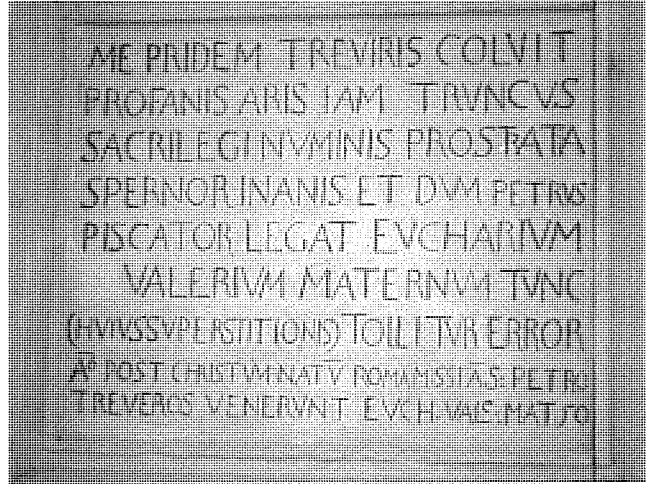 ME PRIDEM TREVIRIS COLVIT
PROFANIS ARIS IAM TRVNCVS
SACRILEGI NVMINIS PROSTRATA
SPERNOR INANIS ET DVM PETRVS
PISCATOR LEGAT EVCHARIVM
VALERIVM MATERNVM TVNC
(HVIVS SVPERSTITIONIS) TOLLITVR ERROR
Aº POST CHRISTVM NATV ROMA MISSI A S: PETRO
TREVEROS VENERVNT EVCH. VALE. MAT